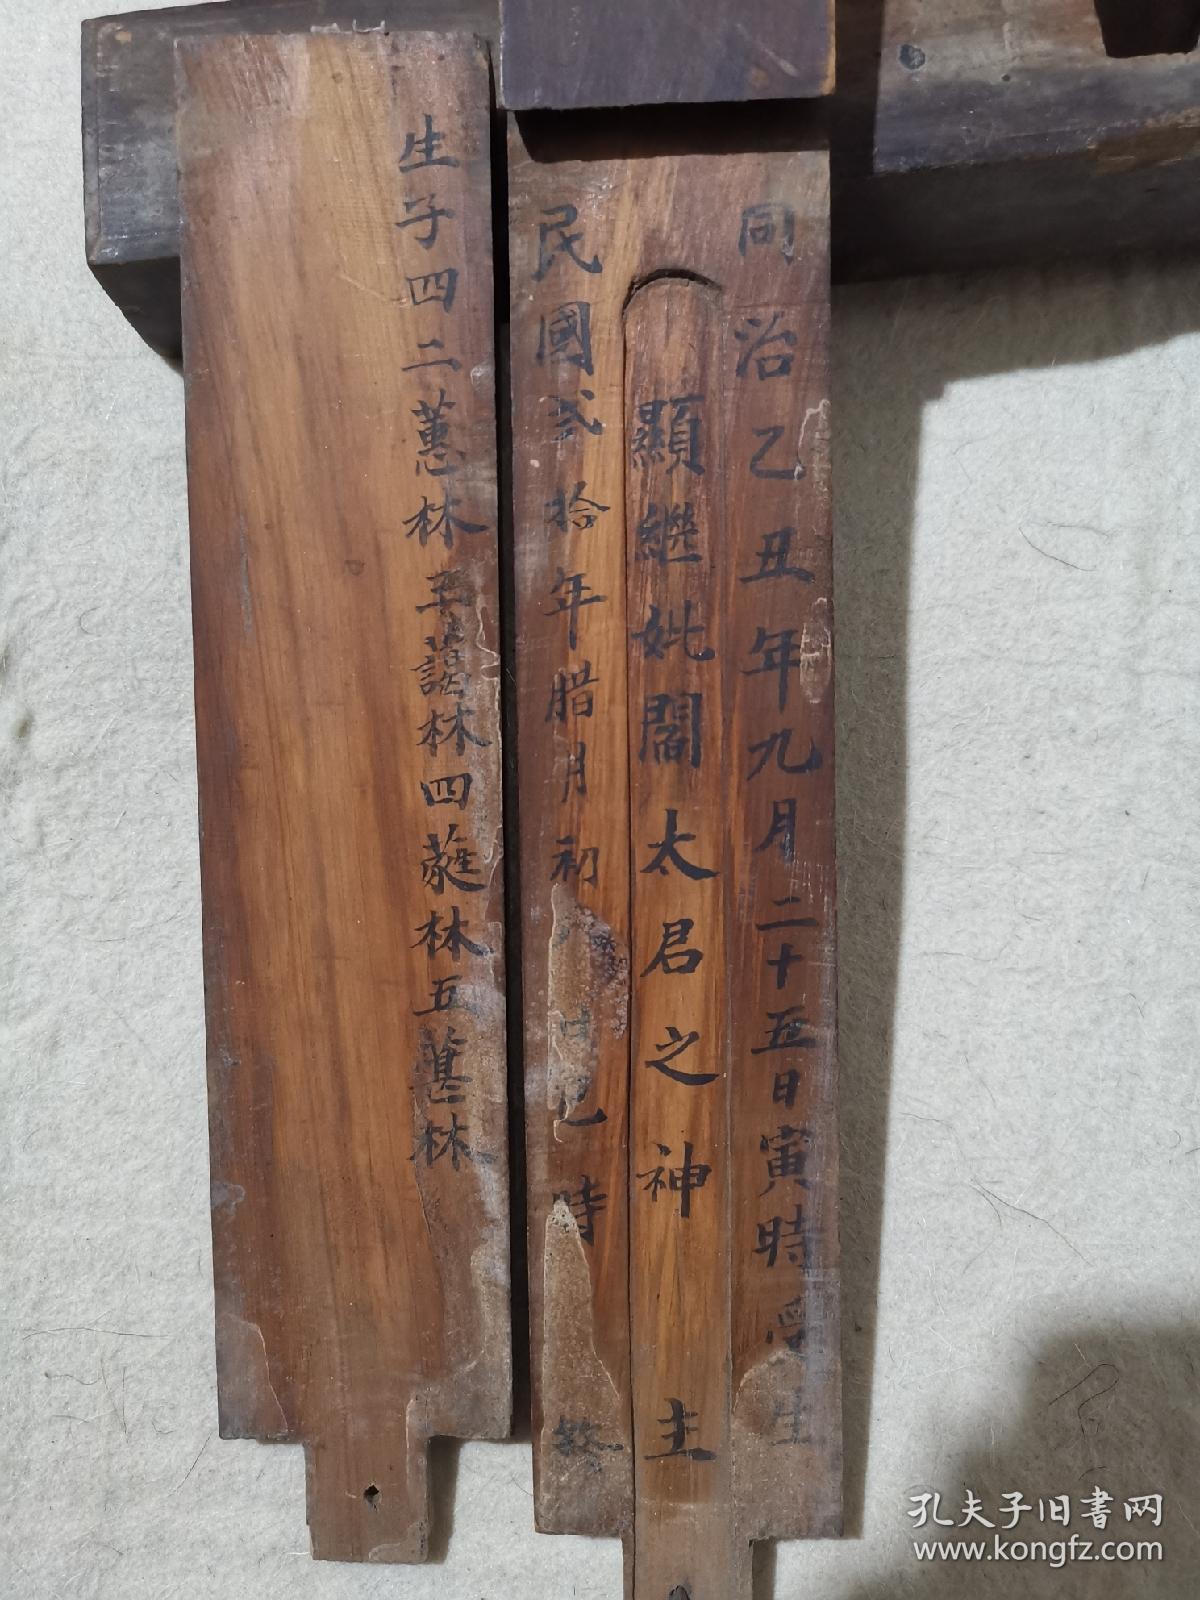 同治乙丑年九月二十五日寅時受生
顯繼妣閻太君之神主
民國弍拾年腊月初八日巳時終
生子四二蕙林三藹林四蕤林五葚林
孔夫子旧书网
www.kongfz.com